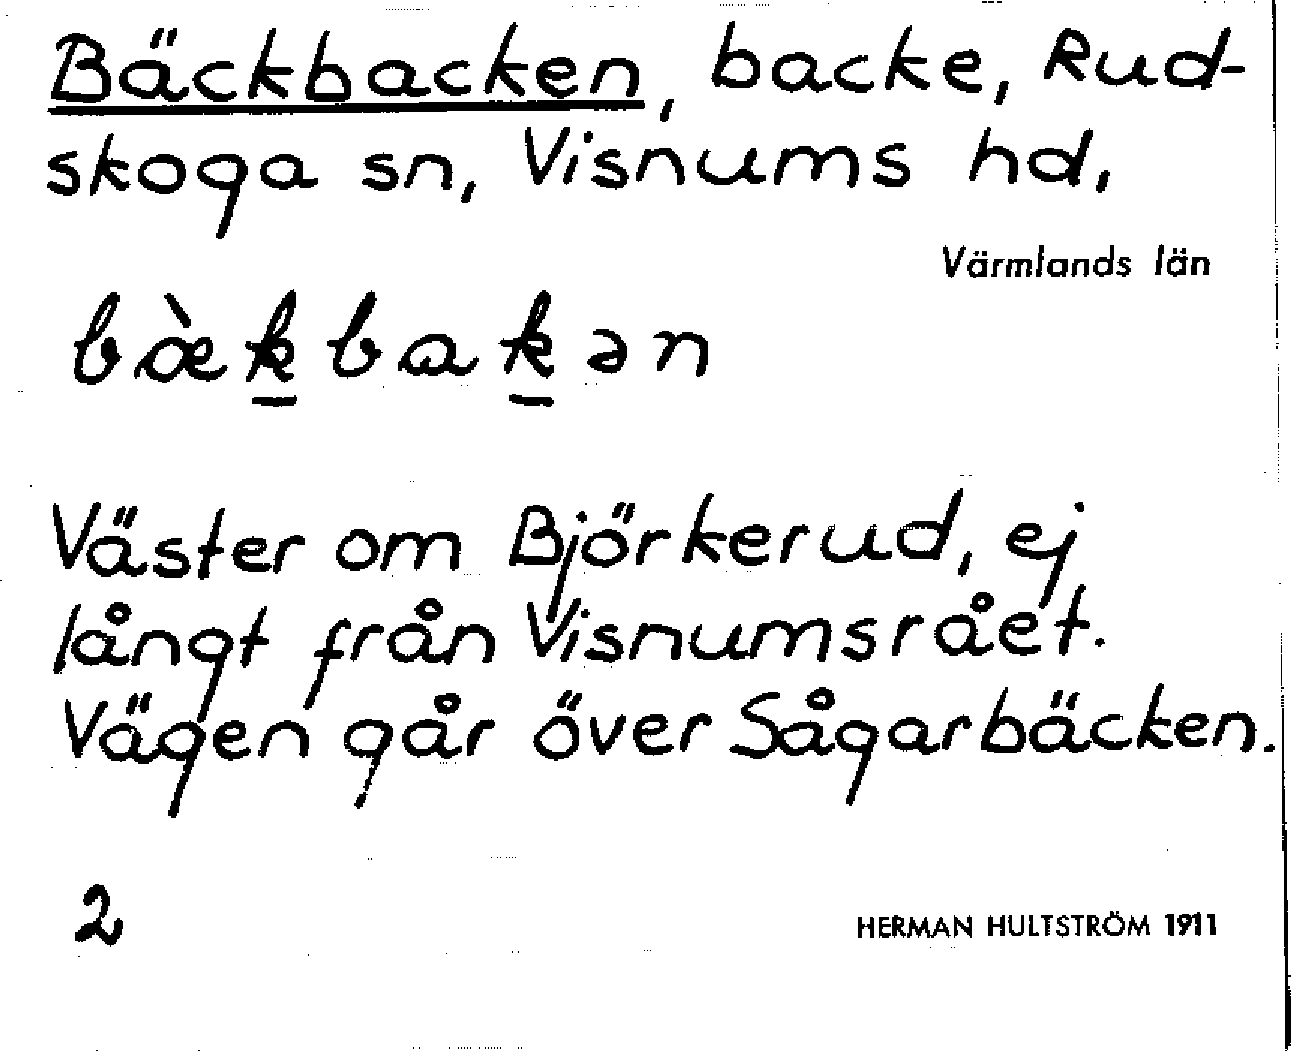 Bäckbacken, backe, Rud-
skoga sn, Visnums hd,
Värmlands län
bæ̀k̲bak̲ən
Väster om Björkerud, ej
långt från Visnumsrået.
Vägen går över Sågarbäcken.
2
HERMAN HULTSTRÖM 1911